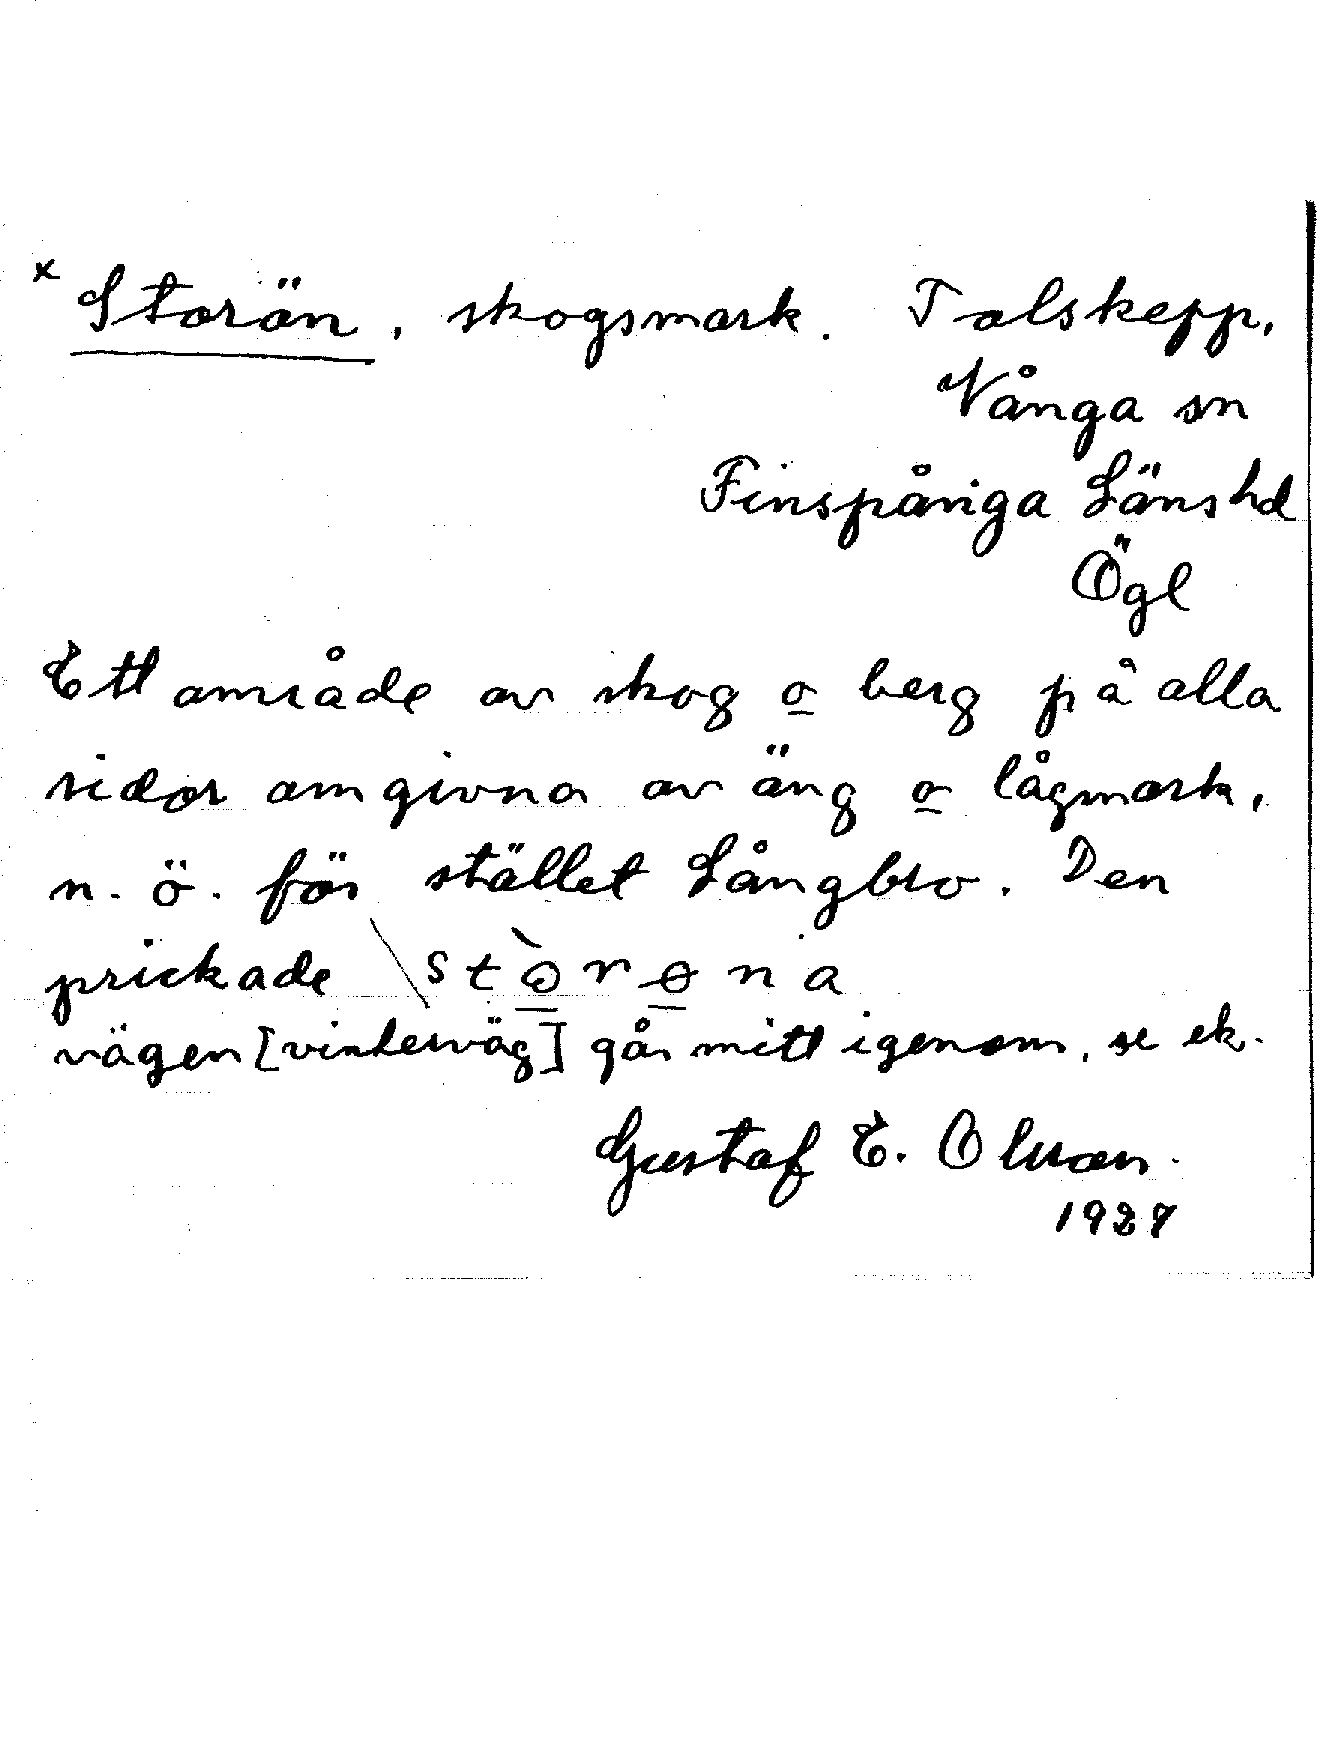 x Storän, skogsmark. Tolskepp,
Vånga sn
Finspånga Länshd
Ögl
Ett område av skog o berg på alla
sidor omgivna av äng o lågmark,
n. ö. för stället Långbro. Den
prickade
vägen [vinterväg] går mitt igenom, se ek.
Gustaf E. Olsson.
1927